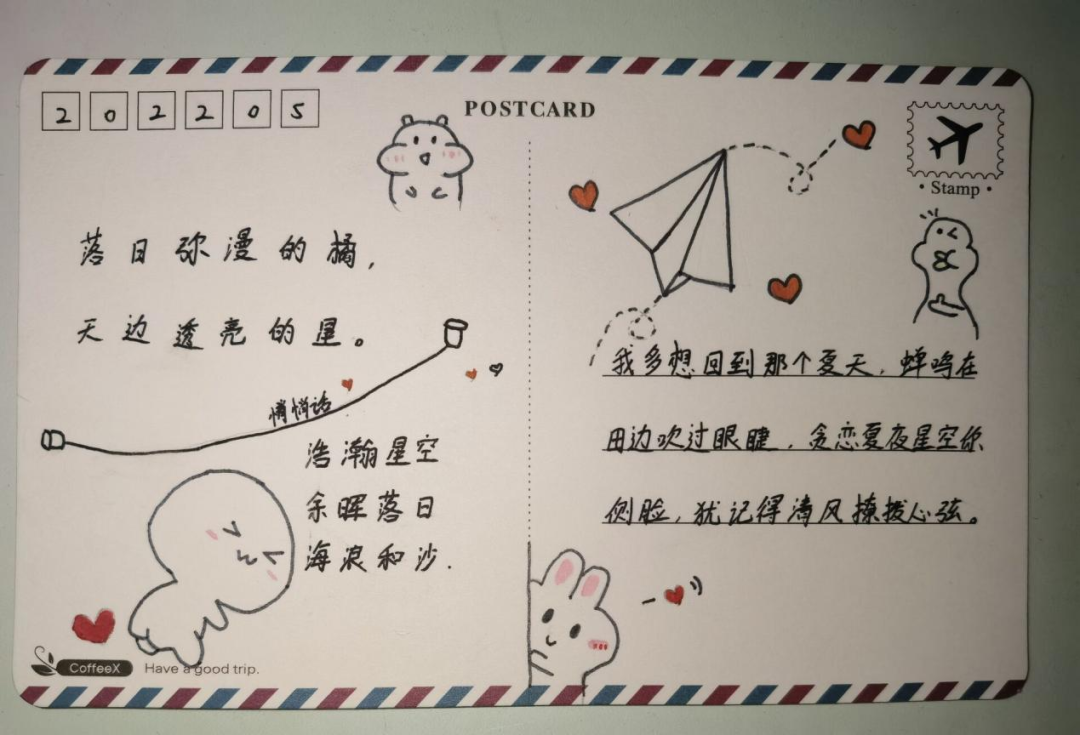 202205
POSTCARD
Stamp
落日弥漫的橘,
天边透亮的星。
悄悄话
浩瀚星空
余晖落日
海浪和沙.
我多想回到那个夏天,蝉鸣在
田边吹过眼睫,贪恋夏夜星空你
侧脸,犹记得清风撩拨心弦。
CoffeeX Have a good trip.